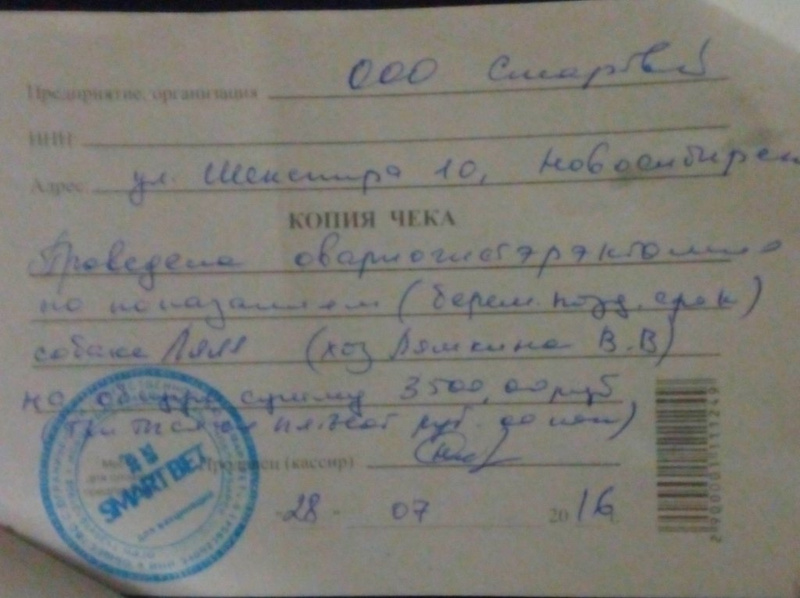 Предприятие, организация ООО Смартвет
ИНН
Адрес ул. Шекспира 10, Новосибирск
КОПИЯ ЧЕКА
Проведена овариогистэрэктомия
по показаниям (берем. позд. срок)
собаке Ляля (хоз Лямкина В.В)
на общую сумму 3500,00 руб
(три тысячи пятьсот руб. 00 коп)
Продавец (кассир)
SMART ВЕТ
28 07 2016
2900001111249